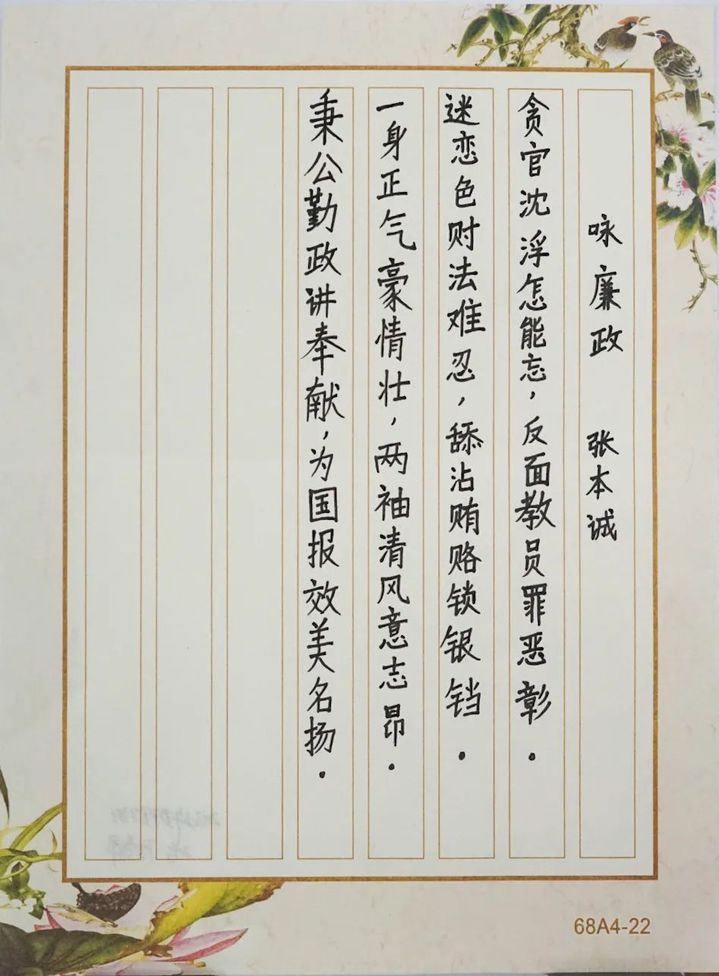 咏廉政 张本诚
贪官沈浮怎能忘，反面教员罪恶彰．
迷恋色财法难忍，舔沾贿赂锁银铛．
一身正气豪情壮，两袖清风意志昂．
秉公勤政讲奉献，为国报效美名扬．
68A4-22